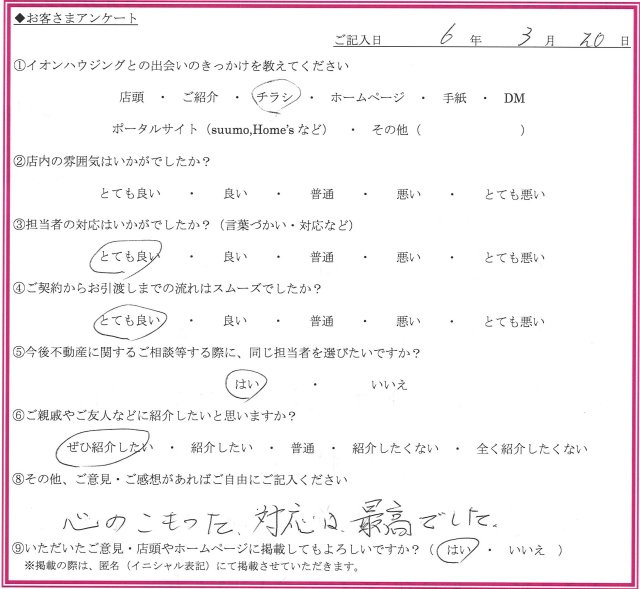 ◆お客さまアンケート
ご記入日 6 年 3 月 20 日
①イオンハウジングとの出会いのきっかけを教えてください
店頭 ・ ご紹介 ・ チラシ ・ ホームページ ・ 手紙 ・ DM
ポータルサイト（suumo,Home's など） ・ その他（ ）
②店内の雰囲気はいかがでしたか？
とても良い ・ 良い ・ 普通 ・ 悪い ・ とても悪い
③担当者の対応はいかがでしたか？（言葉づかい・対応など）
とても良い ・ 良い ・ 普通 ・ 悪い ・ とても悪い
④ご契約からお引渡しまでの流れはスムーズでしたか？
とても良い ・ 良い ・ 普通 ・ 悪い ・ とても悪い
⑤今後不動産に関するご相談等する際に、同じ担当者を選びたいですか？
はい ・ いいえ
⑥ご親戚やご友人などに紹介したいと思いますか？
ぜひ紹介したい ・ 紹介したい ・ 普通 ・ 紹介したくない ・ 全く紹介したくない
⑧その他、ご意見・ご感想があればご自由にご記入ください
心のこもった、対応は、最高でした。
⑨いただいたご意見・店頭やホームページに掲載してもよろしいですか？（ はい ・ いいえ ）
※掲載の際は、匿名（イニシャル表記）にて掲載させていただきます。